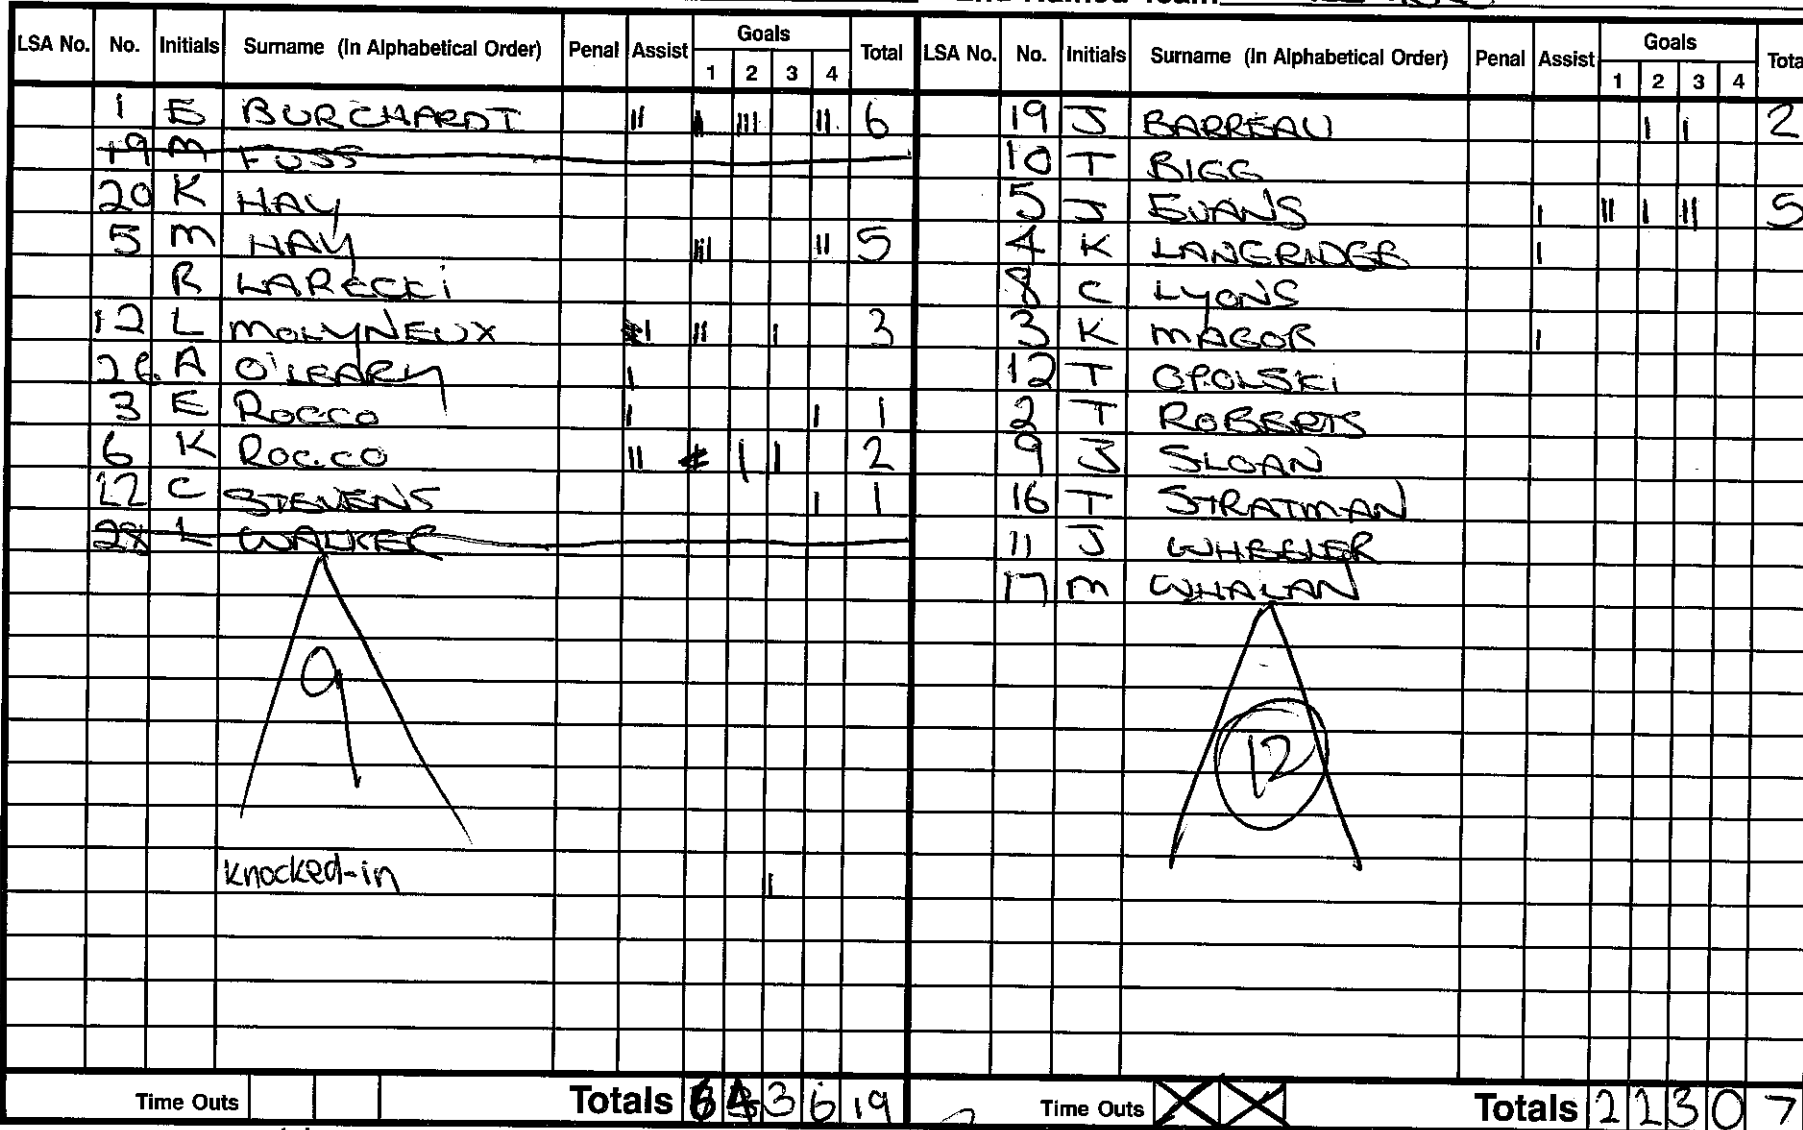 LSA No. No. Initials Surname (In Alphabetical Order) Penal Assist Goals Total
1 2 3 4
1 E BURCHARDT 6
19 M FUSS
20 K HAY
5 M HAY 5
R LARECKI
12 L MOLYNEUX 3
26 A O'LEARY
3 E ROCCO 1
6 K ROCCO 2
22 C STEVENS 1
28 L WALKER
9
Knocked-in
Time Outs Totals 6 4 3 6 19
LSA No. No. Initials Surname (In Alphabetical Order) Penal Assist Goals Tota
1 2 3 4
19 J BARREAU 2
10 T BIGG
5 J EVANS 5
4 K LANGRIDGE
8 C LYONS
3 K MAGOR
12 T OPOLSKI
2 T ROBERTS
9 J SLOAN
16 T STRATMAN
11 J WHEELER
17 M WHALAN
12
Time Outs Totals 2 2 3 0 7